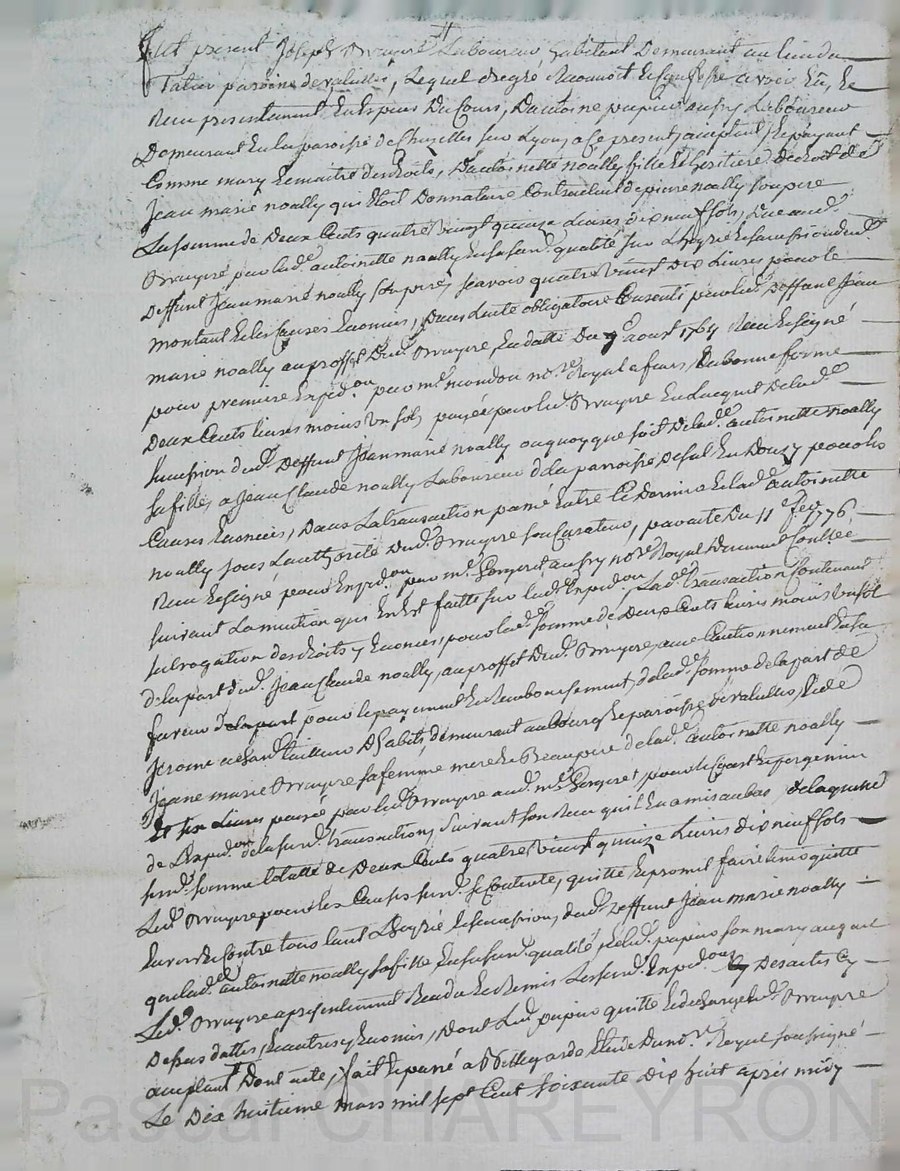 fut present Joseph Bruyere Laboureur habitant demeurant au lieu du
paroisse de valeilles, Lequel degré Reconnoit et Confesse avoir Eû, et
Reçu presentement En Espèces du Cours, d'antoine papier Laboureur
Demeurant En la paroisse de Chazelles sur Lyon, a Ce present, acceptant, et payant
Comme mary et maitre des droits, d'antoinette noally fille et heritiere de droit de ft
Jean marie noally qui Etoit Donnataire Contractuel de pierre noally son pere
La somme de Deux Cents quatre vingt quinze Livres dix neuf sols, due aud.
Bruyere par lad.e antoinette noally En sa susd. qualité sur L'hoyrie et succession dud.t
Deffunt Jean marie noally son pere, scavoir quatre vingt dix Livres pour le
montant et les Causes Enoncés, dans L'acte obligatoire Consenti par led. Deffunt Jean
marie noally au proffit Dud. Bruyere, En datte Du 9e aout 1764 Reçu et signé
pour premiere Expid.on par me mondon no.re Royal a feurs, En bonne forme
Deux Cents livres moins un sols payée par led. Bruyere En L'acquit de lad.e
succession dud. Deffunt Jean marie noally ou quoy que soit de lad.e antoinette noally
sa fille, a Jean Claude noally Laboureur de la parroisse de pour les
Causes Enoncées, Dans La transaction passé Entre Ce Dernier et lad.e antoinette
noally sous L'authorité dud. Bruyere son Curateur, par acte Du 11e fev. 1776
Reçu et signé pour Expid.on par me no.re Royal Duement Controllée
suivant La mention qui En Est faitte sur lad.e Expid.on Lad.e transaction Contenant
subrogation des droits y Enoncés, pour lad.e somme de Deux Cents livres moins un sol
de la part dud. Jean Claude noally, au proffit Dud. Bruyere, avec Cautionnement En sa
faveur pour le payement et Remboursement, de lad.e somme de la part de
Jerome tailleur D'habits, demeurant au bourg et paroisse de valeilles, et de
Jeane marie Bruyere sa femme mere et Beaupere de lad.e antoinette noally
Et six Livres payée par led. Bruyere aud. me pour et
de L'Expid.on de la susd. transaction, suivant son Reçu qu'il En a mis au bas, de laquelle
susd. somme totalle de Deux Cents quatre vingt quinze Livres dix neuf sols
Led. Bruyere pour les Causes susd. se Contente, quitte et promet faire tenir quitte
Envers et Contre tous tant L'hoyrie et succession, dud. Deffunt Jean marie noally
que lad.e antoinette noally sa fille En sa susd. qualité, et led. papier son mary auquel
Led. Bruyere a presentement Rendu et Remis Les susd. Expid.ons des actes Cy
Dessus dattés, et autres y Enoncés, Dont Led. papier quitte et decharge led. Bruyere
acceptant Dont acte, fait et passé a Bellegarde Etude Du no.re Royal soussigné
Le Dix huitieme mars mil sept Cent soixante dix huit apres midy
Pascal CHAREYRON